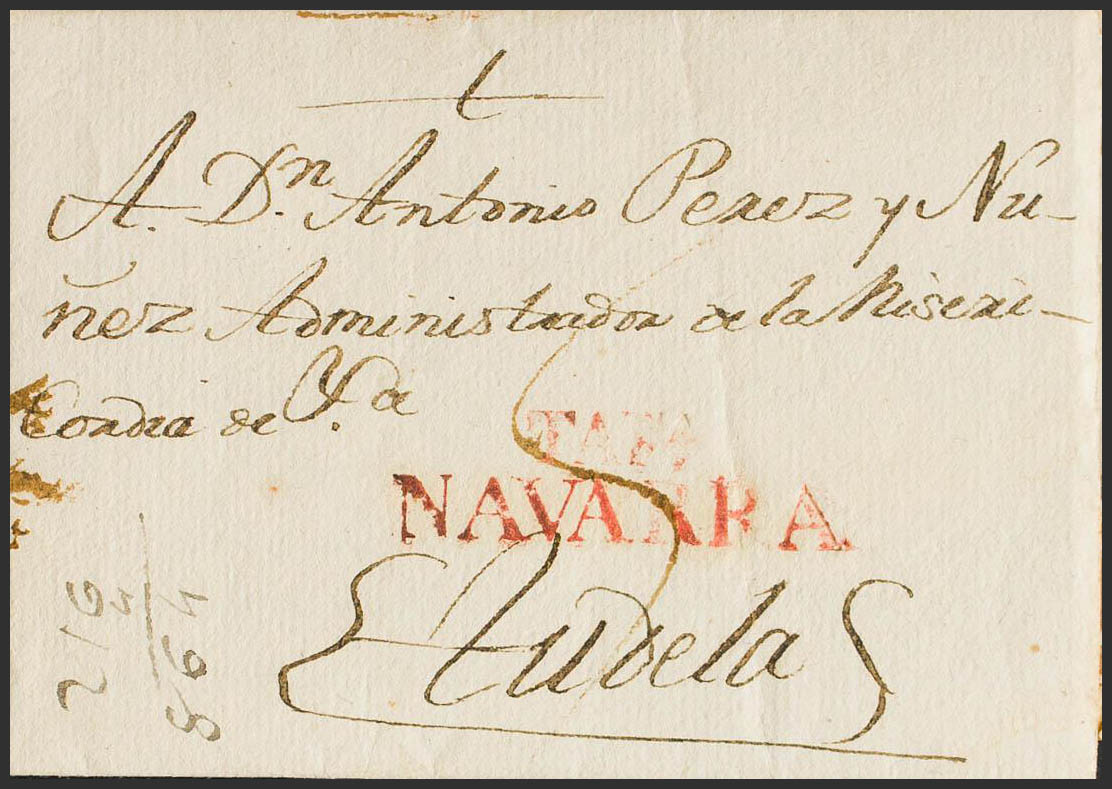 A. Dn. Antonio Perez y Nu-
ñez Administrador de la Miseri-
Cordia de
TAFA
NAVARRA.
tudela